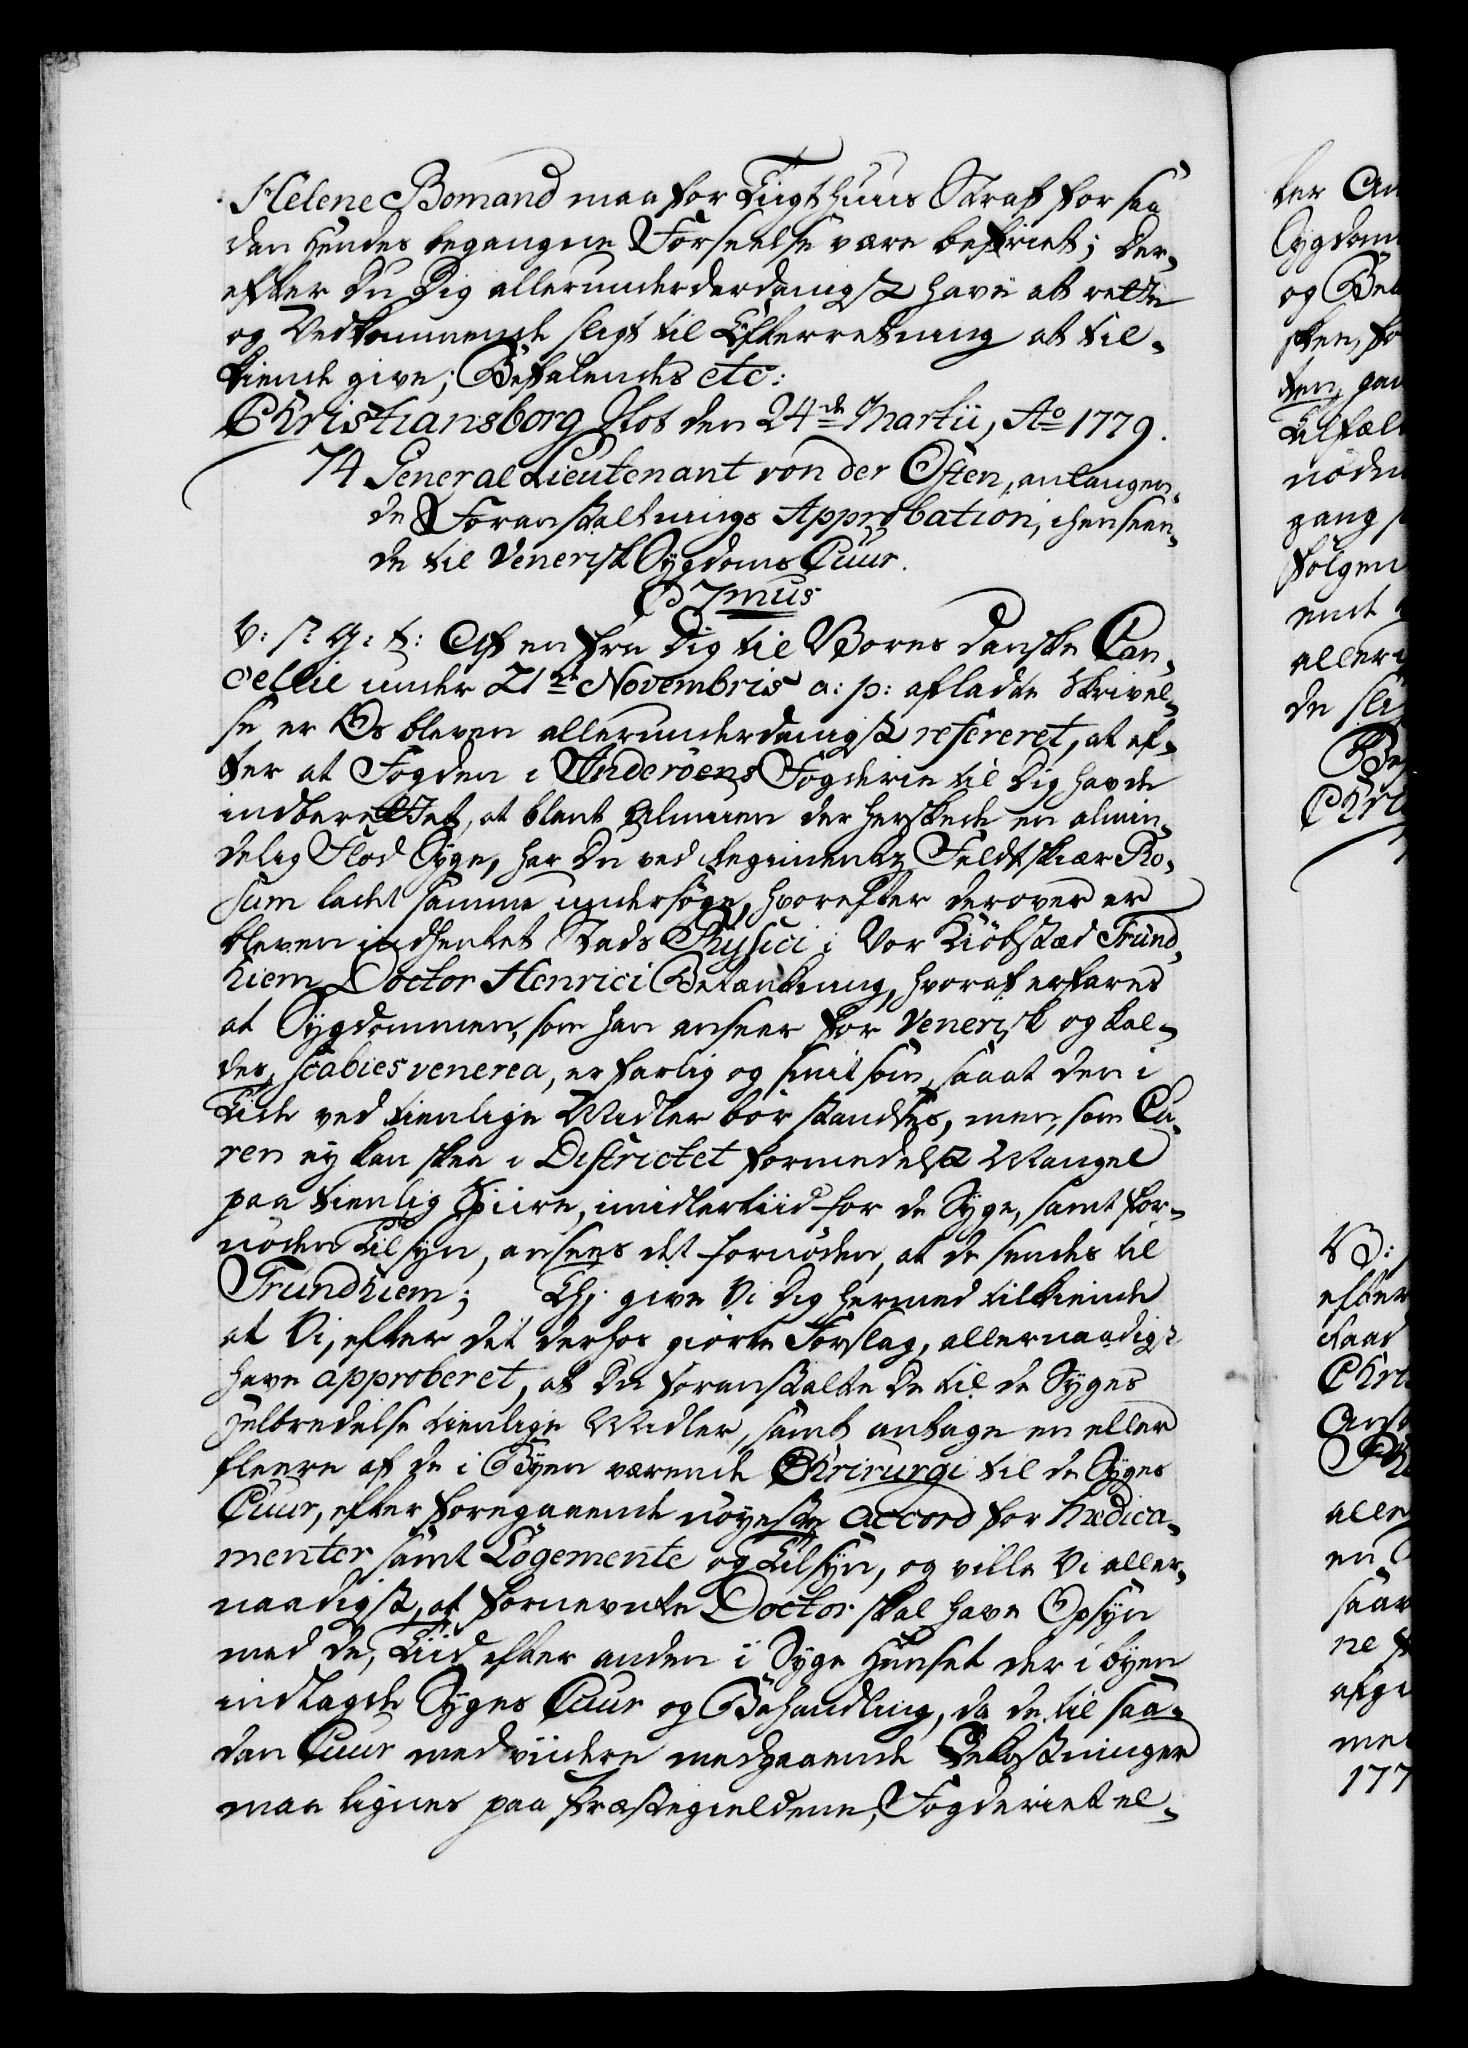 Helene Bomand maa for Tugthuus Straf for saa
dan hendes begangne Forseelse være befriet; Der-
efter Du Dig allerunderdanigst have at rette
og Vedkommende sligt til Efterretning at til-
kiende give; Befalendes etc:
Christiansborg Slot den 24de Martii, Ao 1779.
74 General Lieutenant von der Osten, anlangen-
de Foranstaltnings Approbation, i henseen-
de til Venerisk Sygdoms Cuur.
C 7mus
V: s: G: t: Af en fra Dig til Vores Danske Can-
cellie under 21de Novembris a: p: afladte Skrivel-
se er Os bleven allerunderdanigst refereret, at ef-
ter at Fogden i Inderöens Fogderie til Dig havde
indberettet, at blant Almuen der herskede en almin-
delig Flod Syge, har Du ved Regiments Feldtskiær Ro-
sum ladet samme undersøge, hvorefter derover er
bleven indhentet Stads Physici i Vor Kiöbstæd Trund-
hiem Doctor Henrici Betænkning, hvoraf erfares
at Sygdommen, som han anseer for Venerisk og kal-
der, scabies venerea, er farlig og smitsom, saa at den i
Tide ved tienlige Midler bör standses, men, som Cu-
ren ey kan skee i Districtet formedelst Mangel
paa tienlig Spiise, imidlertiid for de Syge, samt for-
nöden Tilsyn, ansees det fornöden, at de sendes til
Trundhiem; Thj give Vi Dig hermed tilkiende
at Vi, efter det derhos giorte Forslag, allernaadigst
have approberet, at Du foranstalte de til de Syges
Helbredelse tienlige Midler, samt antage en eller
fleere af de i Byen værende Chrirurgi til de Syges
Cuur, efter foregaaende nöyeste accord for Medica-
menter samt Logemente og Tilsyn, og ville Vi aller-
naadigst, at fornevnte Doctor skal have Opsyn
med de, Tiid efter anden i Syge Huuset der i Byen
indlagde Syges Cuur og Behandling, da de til saa-
dan Cuur med viidere medgaaende Bekostninger
maa lignes paa Præstegieldene, Fogderiet el-